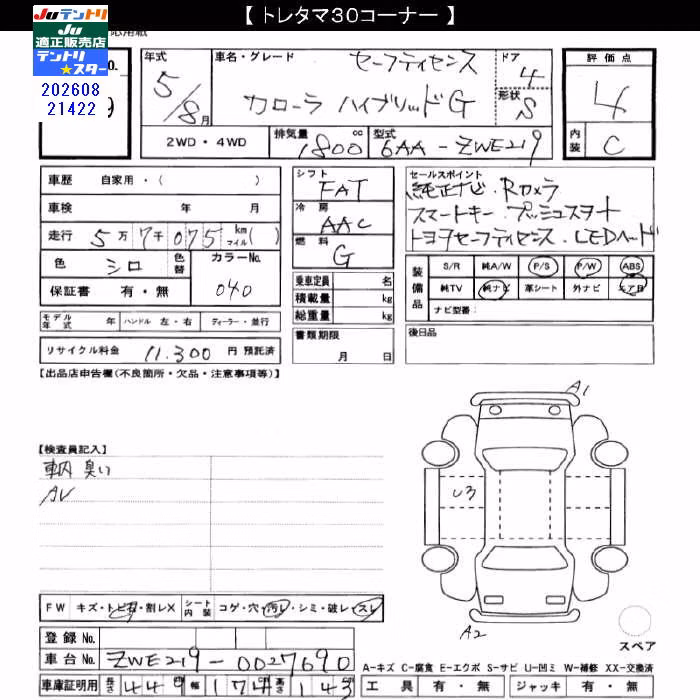 【 トレタマ30コーナー 】
Juテントリ
Ju
適正販売店
テントリ
★スター
202608
21422
No.
9
年式
5/8月
車名・グレード
セーフティセンス
カローラ ハイブリッドG
ドア
4
形状
S
評価点
4
内装
C
2WD・4WD
排気量
1800cc
型式
6AA-ZWE219
車歴 自家用・( )
車検 年 月
走行 5万7千075km マイル( )
色 シロ 色替 カラーNo.
040
保証書 有・無
モデル年式 年 ハンドル 左・右 ディーラー・並行
リサイクル料金 11.300 円 預託済
シフト
FAT
冷房
AAC
燃料
G
乗車定員 名
積載量 kg
総重量 kg
書類期限
月 日
セールスポイント
純正ナビ. Rカメラ
スマートキー. プッシュスタート
トヨタセーフティセンス. LEDヘッド
装備品
S/R 純A/W P/S P/W ABS
純TV 純ナビ 革シート 外ナビ エアB
ナビ型番:
後日品
【出品店申告欄(不良箇所・欠品・注意事項等)】
【検査員記入】
車内 臭い
AV
A1
U3
A2
スペア
FW キズ・トビ石・割レX シート内装 コゲ・穴・汚レ・シミ・破レ・スレ
登録No.
車台No. ZWE219-0027690
車庫証明用 長さ 449 幅 174 高さ 143
A-キズ C-腐食 E-エクボ S-サビ U-凹ミ W-補修 XX-交換済
工具 有・無 ジャッキ 有・無